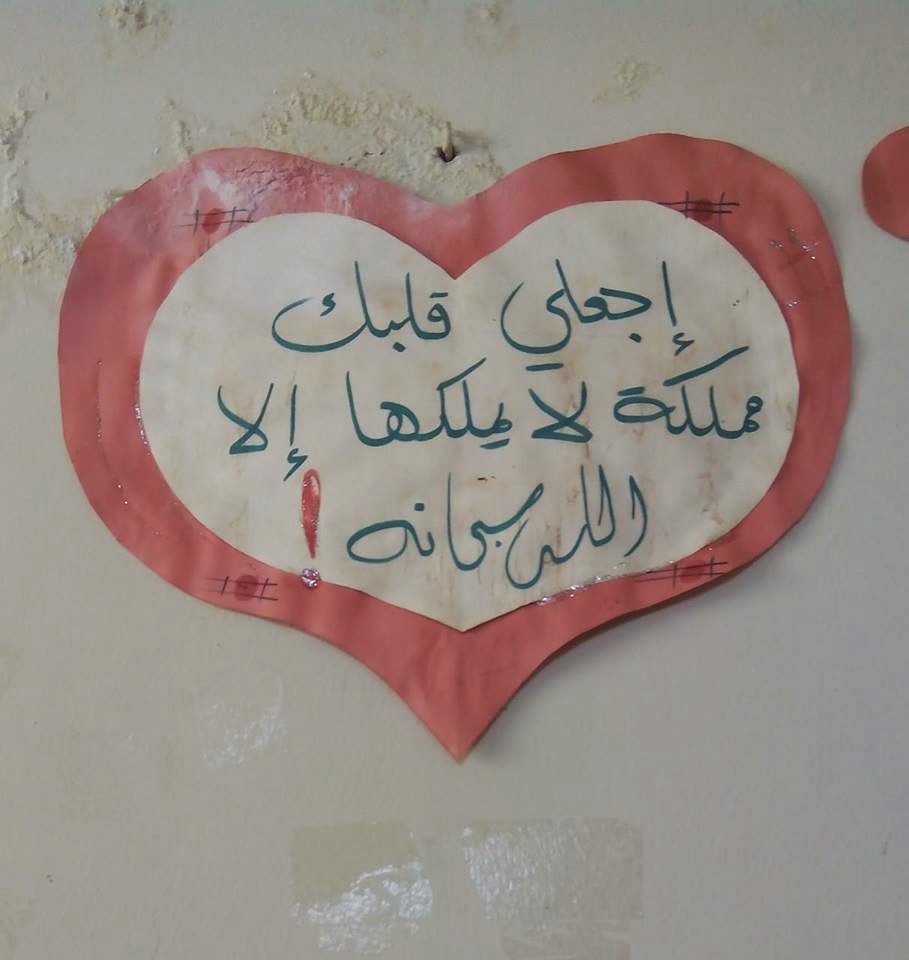 إجعلي قلبك
مملكة لا يملكها إلا
الله سبحانه !